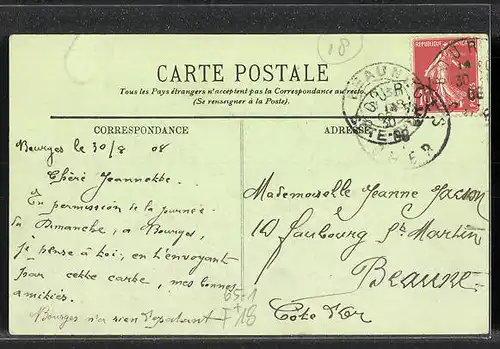 18
CARTE POSTALE
Tous les Pays étrangers n'acceptent pas la Correspondance au recto.
(Se renseigner à la Poste).
REPUBLIQUE
CORRESPONDANCE
ADRESSE
Bourges le 30/8 08
Chère Jeannette.
En permission de la journée
du Dimanche, a Bourges,
je pense à toi, en t'envoyant
par cette carte, mes bonnes
amitiés.
Bourges n'a rien d'epatant
Mademoiselle Jeanne
10 Faubourg St Martin
Beaune
Côte d'Or
18